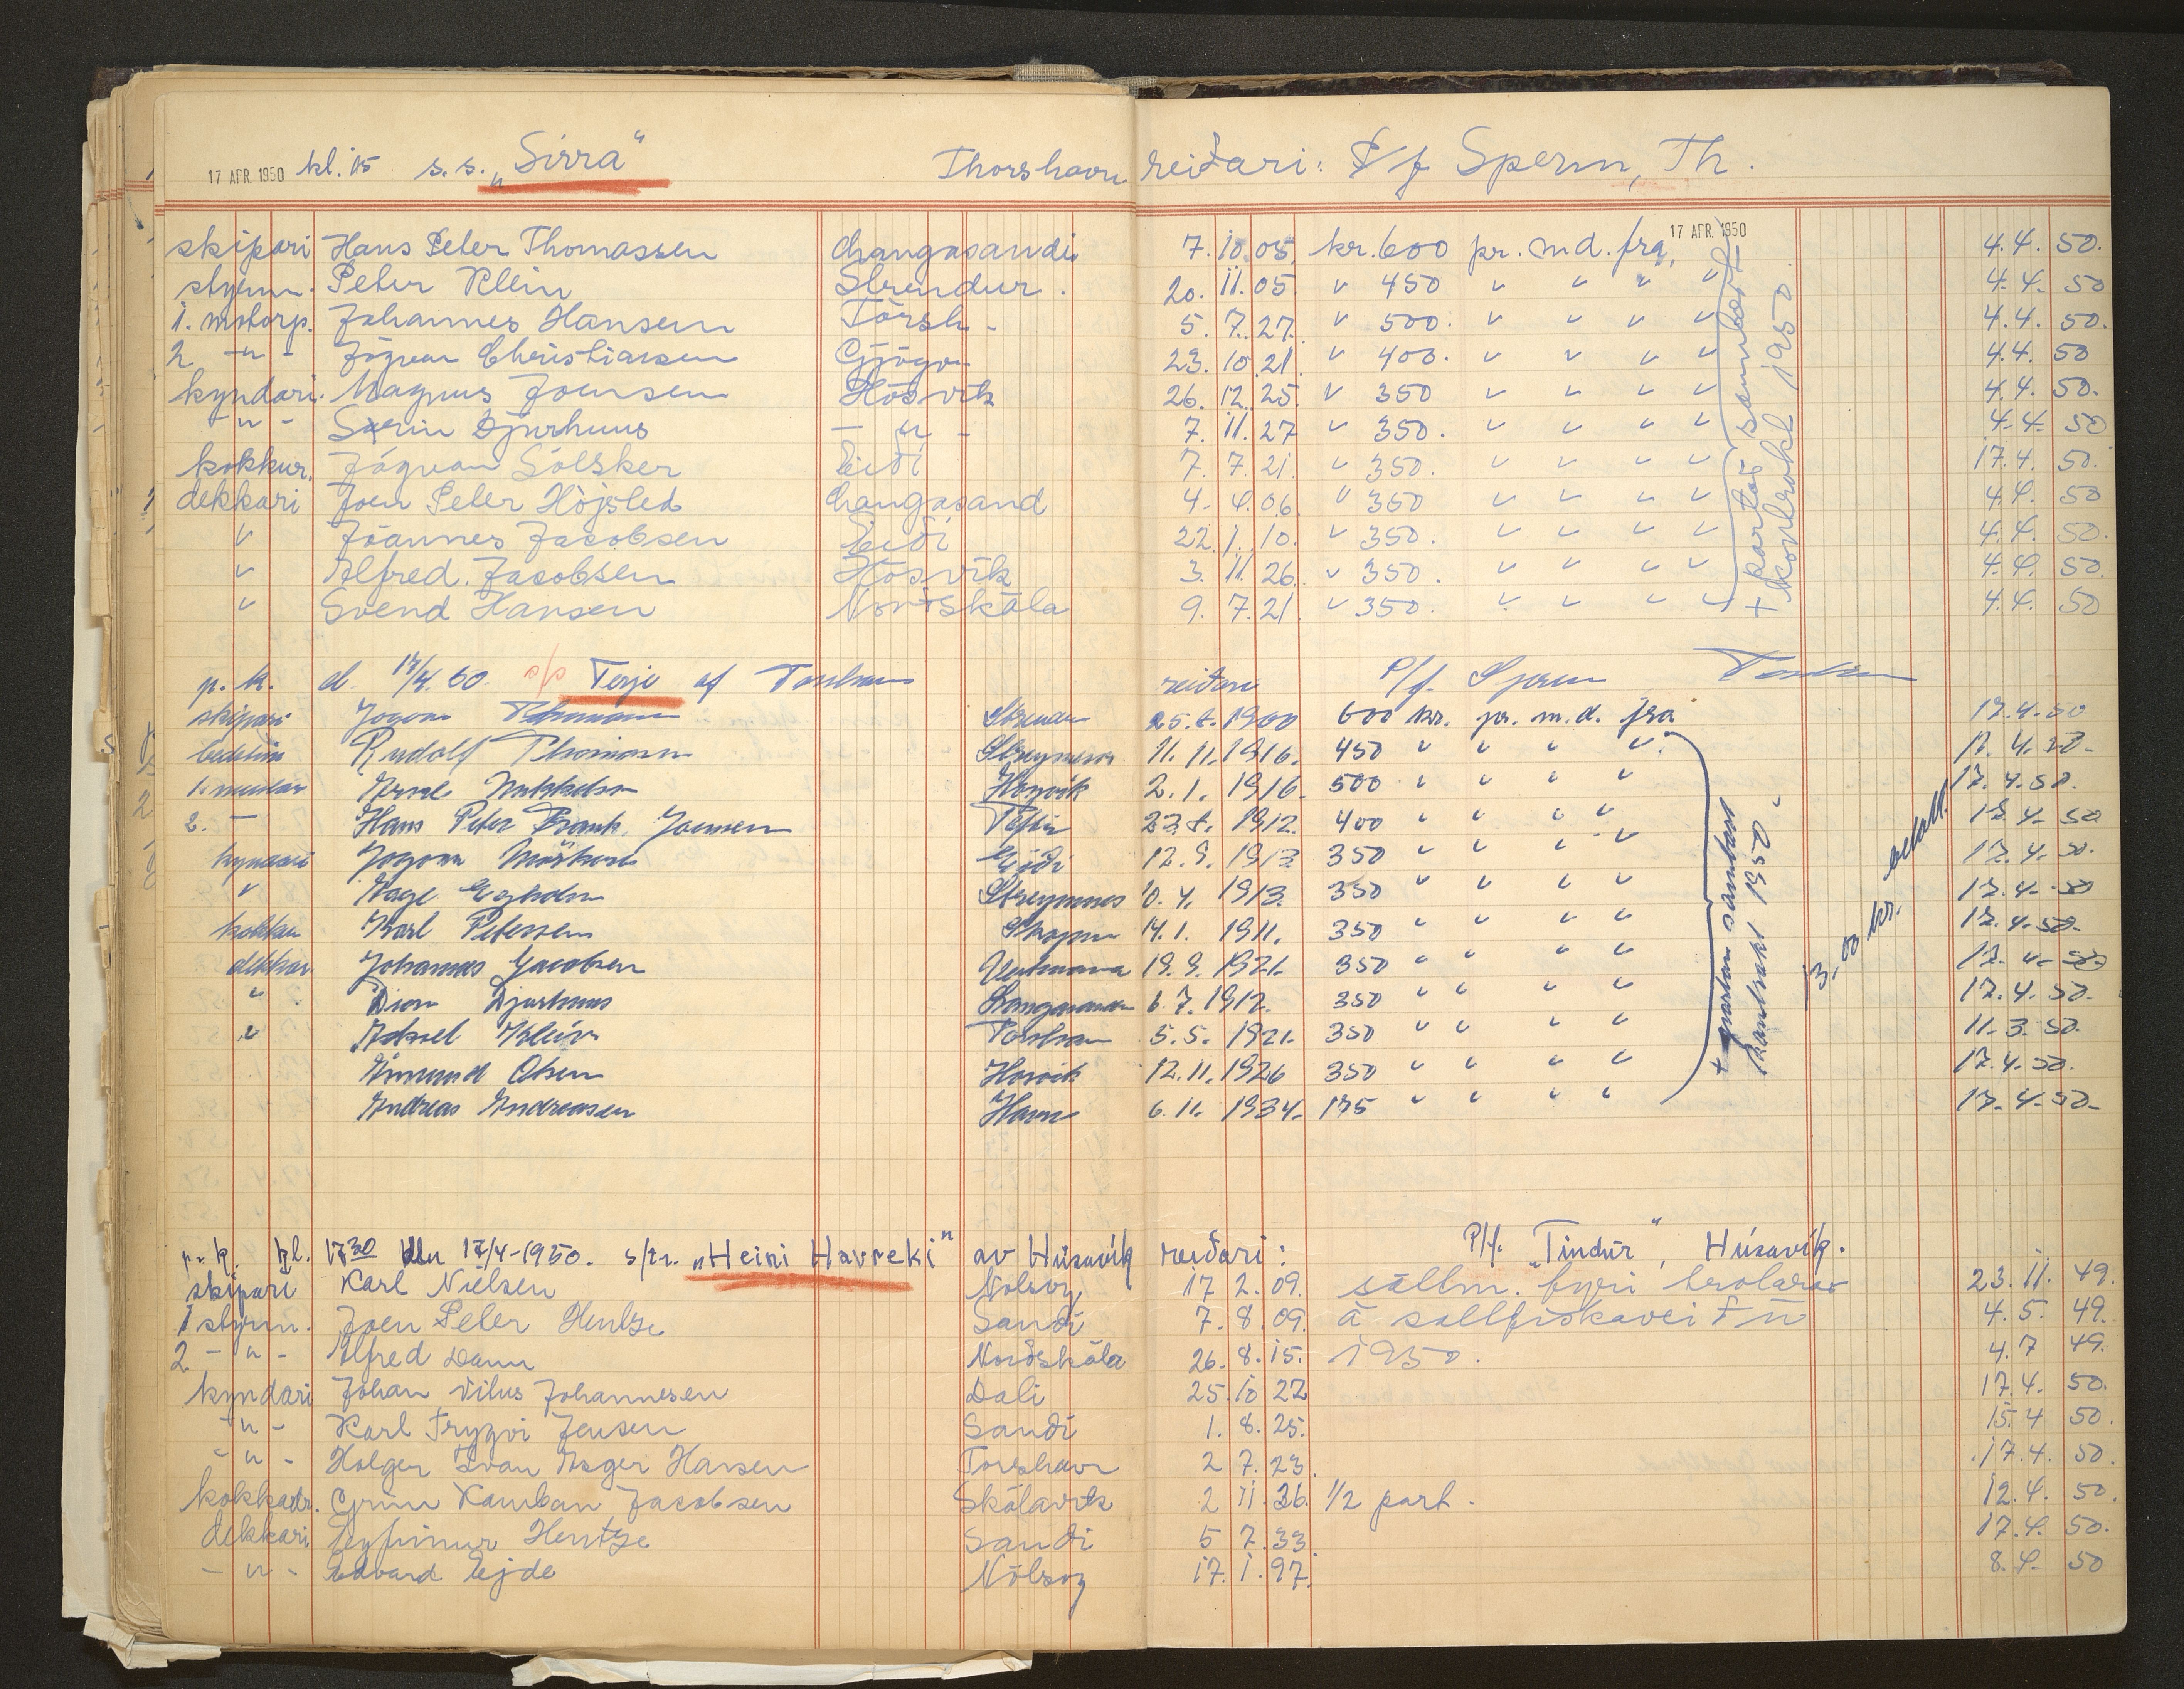 17 APR. 1950 kl. 15 s.s. „Sirra" Thorshavn reiðari: P/f Sperm, Th.
skipari Hans Peter Thomassen Langasandi 7. 10. 05, kr. 600 pr. md. fra, 17 APR. 1950 4.4. 50.
styrm. Peter Klein Strendur. 20. 11. 05. " 450 " " " " 4.4. 50
1. motorp. Johannes Hansen Tórsh- 5. 7. 27. " 500. " " " " 4.4. 50.
2 -"- Jógvan Christiansen Gjógv. 23. 10 21 " 400. " " " " 4.4. 50
kyndari. Magnus Joensen Hósvík 26. 12. 25. " 350 " " " " 4.4. 50.
-"- Sørin Djurhuus -"- 7. 11. 27 " 350. " " " " 4.4. 50
kokkur. Jógvan Sólsker Eiði 7. 7. 21. " 350. " " " " 17.4. 50.
dekkari Joen Peter Højsted Langasand 4. 4. 06. " 350 " " " " 4.4. 50
" Jóannes Jacobsen Eiði 22. 1. 10. " 350. " " " " 4.4. 50.
" Alfred. Jacobsen Hósvík 3. 11. 26. " 350. " " " " 4.4. 50.
" Svend Hansen Norðskála 9. 7. 21 " 350. " " " " 4.4. 50
+ partar sambært kontrakt 1950
p. k. d. 17/4. 50. s/s Terje af Torshavn reiðari P/f. Sperm
skipari Jogvan Strendur 25. 8. 1900 600 kr. pr. m.d. fra 17.4.50
Rudolf Thomsen Streymnes 11. 11. 1916. 450 " " " " 17.4.50-
Hosvik 2. 1. 1916. 500 " " " " 17.4.50.
2. - Hans Peter Frank Joensen 1912. 400 " " " " 17.4. 50
kyndari Jogvan Mørkøre Eiði 12. 9. 1913 350 " " " " 17.4. 50.
" Aage Streymnes 10. 4. 1913. 350 " " " " 17.4. 50
kokkur Karl Petersen 14. 1. 1911. 350 " " " " 17.4.50.
dekkar Johannes Jacobsen Vestmanna 19. 9. 1921. 350 " " " " 17.4.50
" Dion Djurhuus Langasand 6. 7. 1912. 350 " " " " 17.4.50.
" Aksel Klein Torshavn 5. 5. 1921. 350 " " " " 11.3.50.
Amund Olsen Hosvik 12. 11. 1926 350 " " " " 17.4.50.
Andreas Andreasen Havn 6. 11. 1934. 175 " " " " 17.4.50-
+ partar sambært kontrakt 1950
p. k. kl. 17 30 den 17/4-1950. s/tr. „Heini Havreki" av Húsavík reiðari: P/f. „Tindur", Húsavík.
skipari Karl Nielsen Nolsoy 17 2. 09. sáttm. fyri trolarar 23. 11. 49.
1 styrm. Joen Peter Hentze Sandi 7. 8. 09. á saltfiskaveiðu 4. 5. 49.
2 -"- Alfred Dam Norðskála 26. 8. 15. 1950. 4. 7 49.
kyndari Johan Vilus Johannesen Dali 25. 10 22 17. 4. 50.
-"- Karl Trygvi Jensen Sandi 1. 8. 25. 15. 4 50.
-"- Holger Ivan Asger Hansen Torshavn 2 7. 23. 17. 4. 50.
kokkadr. Grím Kamban Jacobsen Skálavík 2 11. 36. 1/2 part. 12. 4. 50.
dekkari Eyfinnur Hentze Sandi 5 7. 33. 17. 4. 50.
-"- Edvard Ejde Nólsoy 17. 1. 97. 8. 4. 50